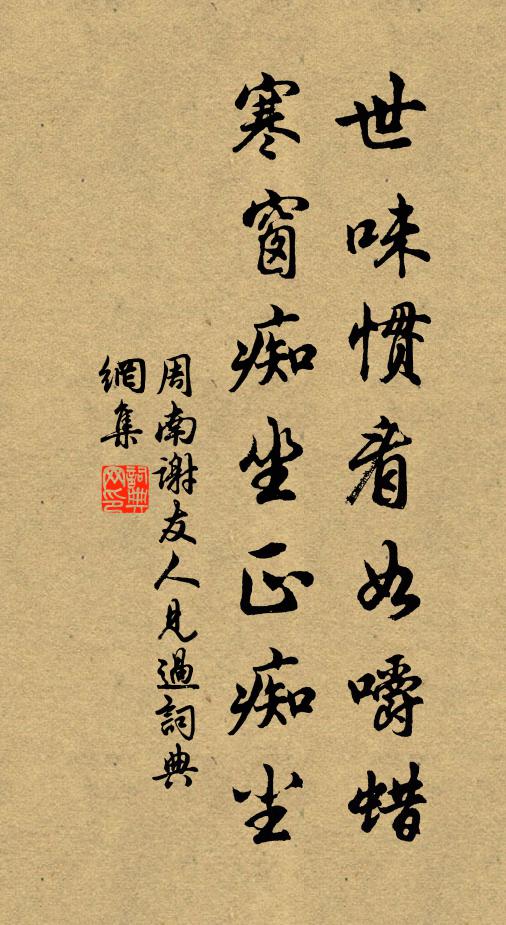 世味惯看如嚼蜡
寒窗痴坐正痴尘
周南谢友人見過詞典
網集
詞典網印